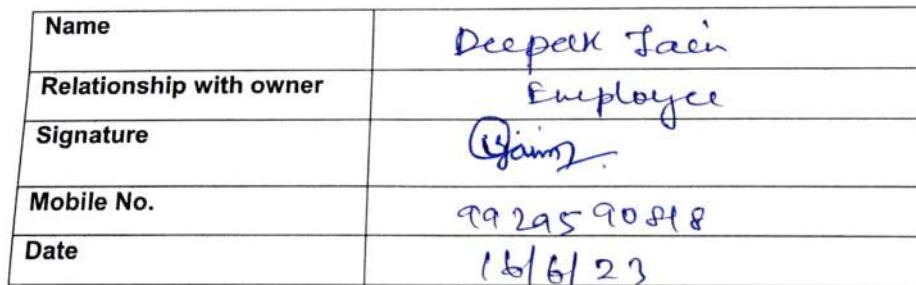 Name Deepak Jain
Relationship with owner Employee
Signature
Mobile No.
Date 16/6/23